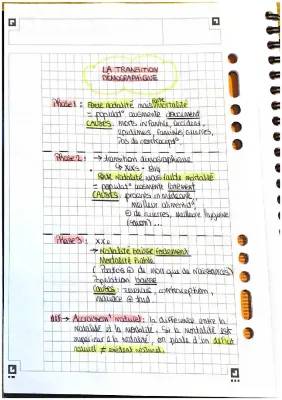 LA TRANSITION
DÉMOGRAPHIQUE
Phase 1 : Forte natalité mais forte mortalité
= populat° augmente doucement
CAUSES : morts infantiles, accident,
épidémies, famine, guerres,
Pas de contracept°...
Phase 2 : → transition démographique
Forte natalité mais faible mortalité
= populat° augmente fortement
CAUSES : progrès en médecine,
meilleur alimentat°,
⊖ de guerres, meilleure hygiène
(savon)...
Phase 3 : XXe
→ Natalité baisse fortement
Mortalité faible
Population baisse
CAUSES : contraception,
DEF → Accroissement naturel : la différence entre la
natalité et la mortalité. Si la mortalité est
supérieur à la natalité, on parle d'un déficit
naturel ≠ excédent naturel.